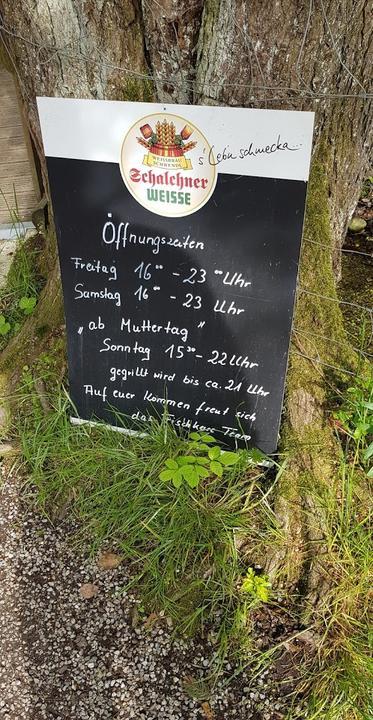 WEISSBRÄU
SCHWENDL
Schalchner
WEISSE
s'Lebn schmecka...
Öffnungszeiten
Freitag 16°° - 23°° Uhr
Samstag 16°° - 23 Uhr
"ab Muttertag"
Sonntag 15³⁰ - 22 Uhr
gegrillt wird bis ca. 21 Uhr
Auf euer Kommen freut sich
das Team